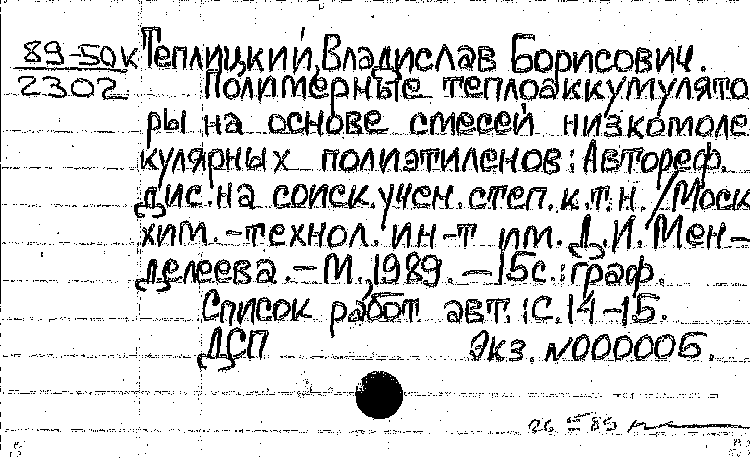 89-50к Теплицкий, Владислав Борисович.
2302 Полимерные теплоаккумулято
ры на основе смесей низкомоле
кулярных полиэтиленов: Автореф.
дис. на соиск. учен. степ. к.т.н. / Моск
хим.-технол. ин-т им. Д.И. Мен-
делеева. - М., 1989. - 15с.: граф.
Список работ авт.: С. 14-15.
ДСП Экз. N000005.